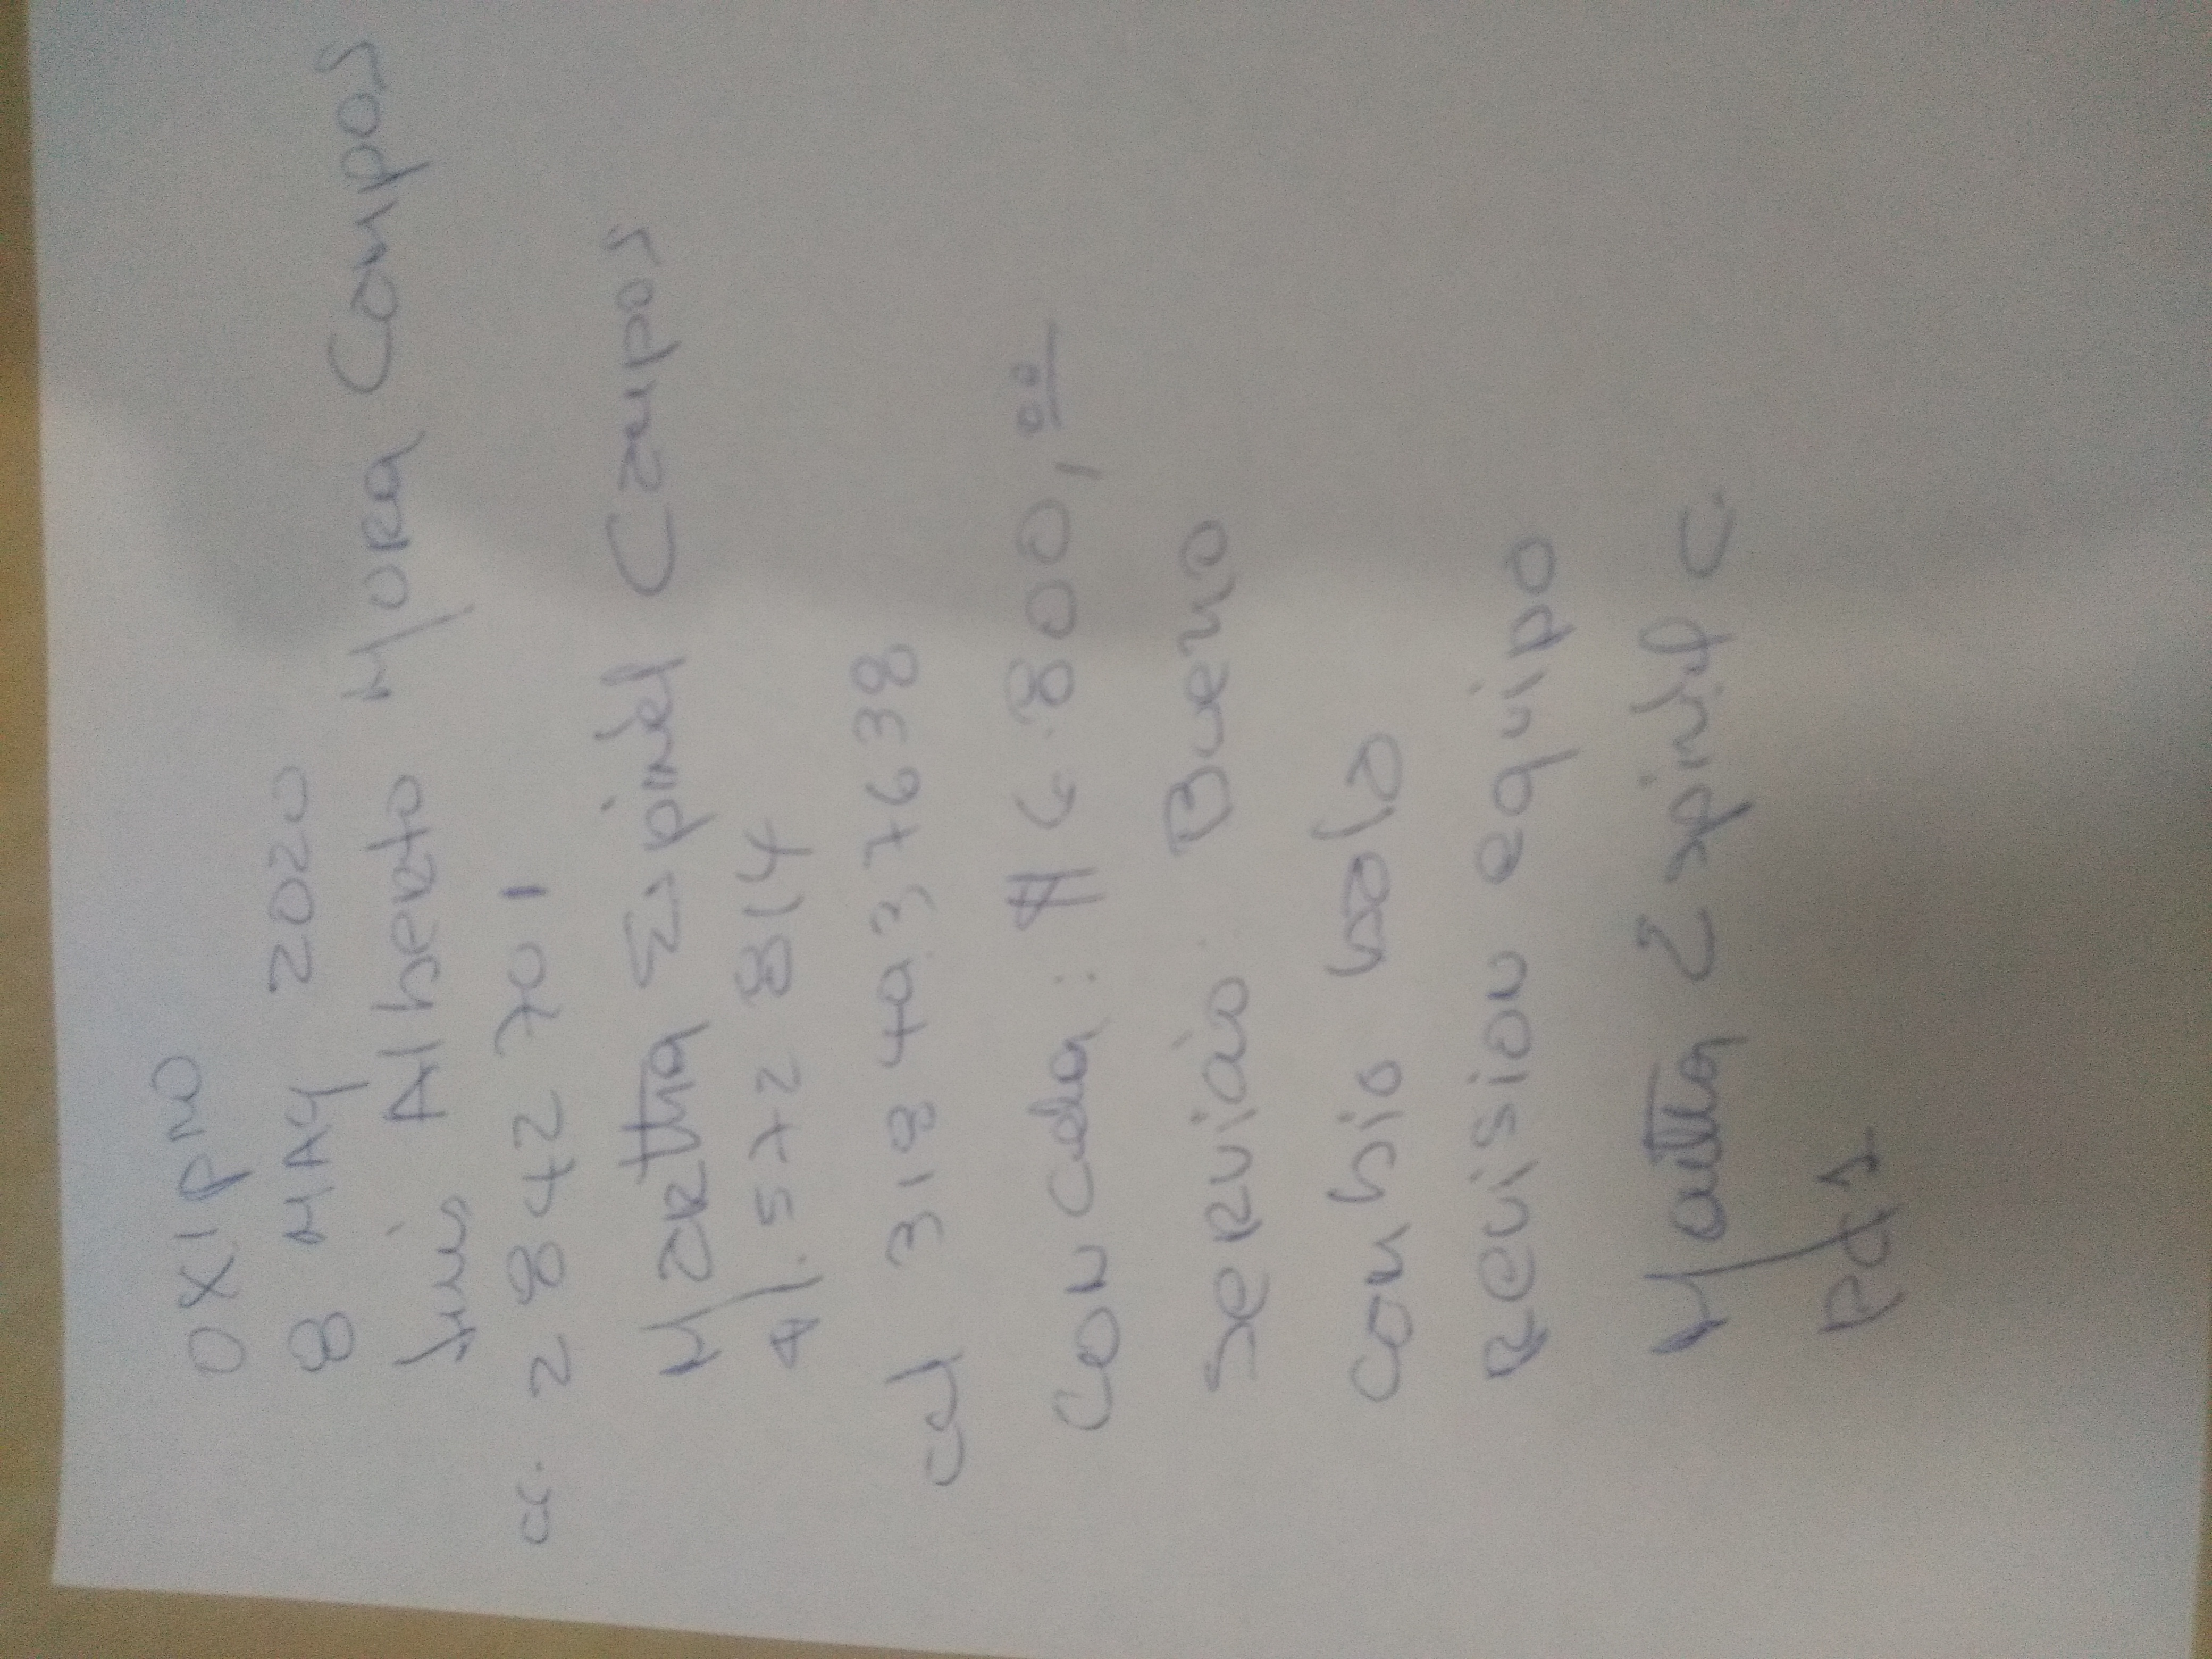 OXIPRO
8 MAY 2020
Luis Alberto Mora Campos
cc. 2 842 701
Martha Espinel Campos
41.572 814
cel 318 493 7638
Con Cedia: $ 6.800,00
Servicio: Bueno
Cambio bala
Revision equipo
Martha Espinel C.